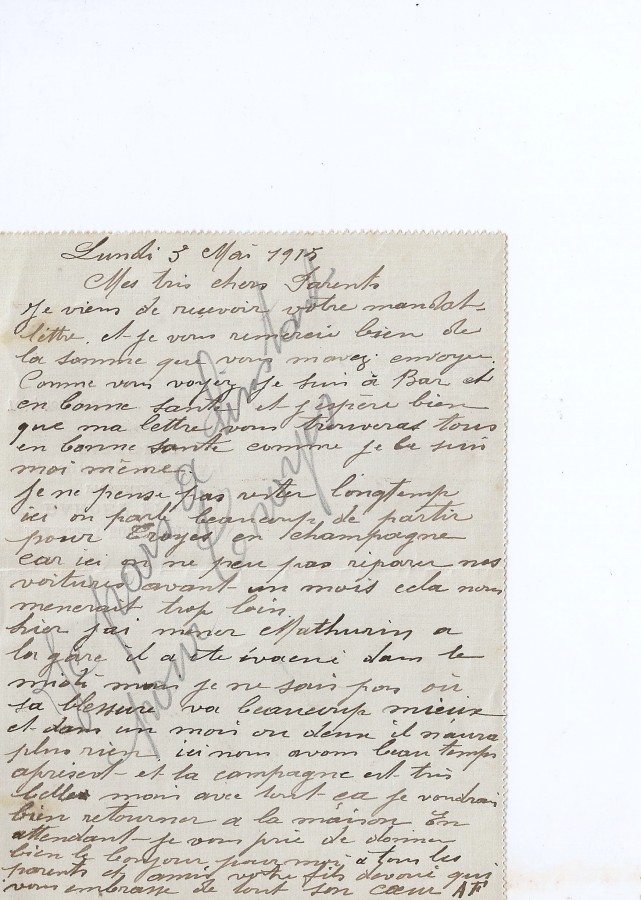 Lundi 3 Mai 1915
Mes tris chers Parents
Je viens de recevoir votre mandat-
lettre. et je vous remercie bien de
la somme que vous mavez envoyé.
Comme vous voyez je suis à Bar et
en bonne santé et j'espère bien
que ma lettre vous trouveras tous
en bonne santé comme je le suis
moi même.
Je ne pense pas rester longtemp
ici on parle beaucoup de partir
pour Troyes en champagne
car ici on ne peu pas réparer nos
voitures avant un mois cela nous
menerait trop loin.
hier j'ai mener Mathurin a
la gare il a été évacué dans le
midi mais je ne sais pas où
sa blessure va beaucoup mieux
et dans un mois ou deux il n'aura
plus rien. ici nous avons beau temps
apresent et la campagne est tris
belle mais avec tout ça je voudrai
bien retourner a la maison En
attendant je vous prie de donner
bien le bonjour pour moi a tous les
parents et amis votre fils dévoué qui
vous embrasse de tout son cœur AF
Je pars a l'instant
pour Troyes